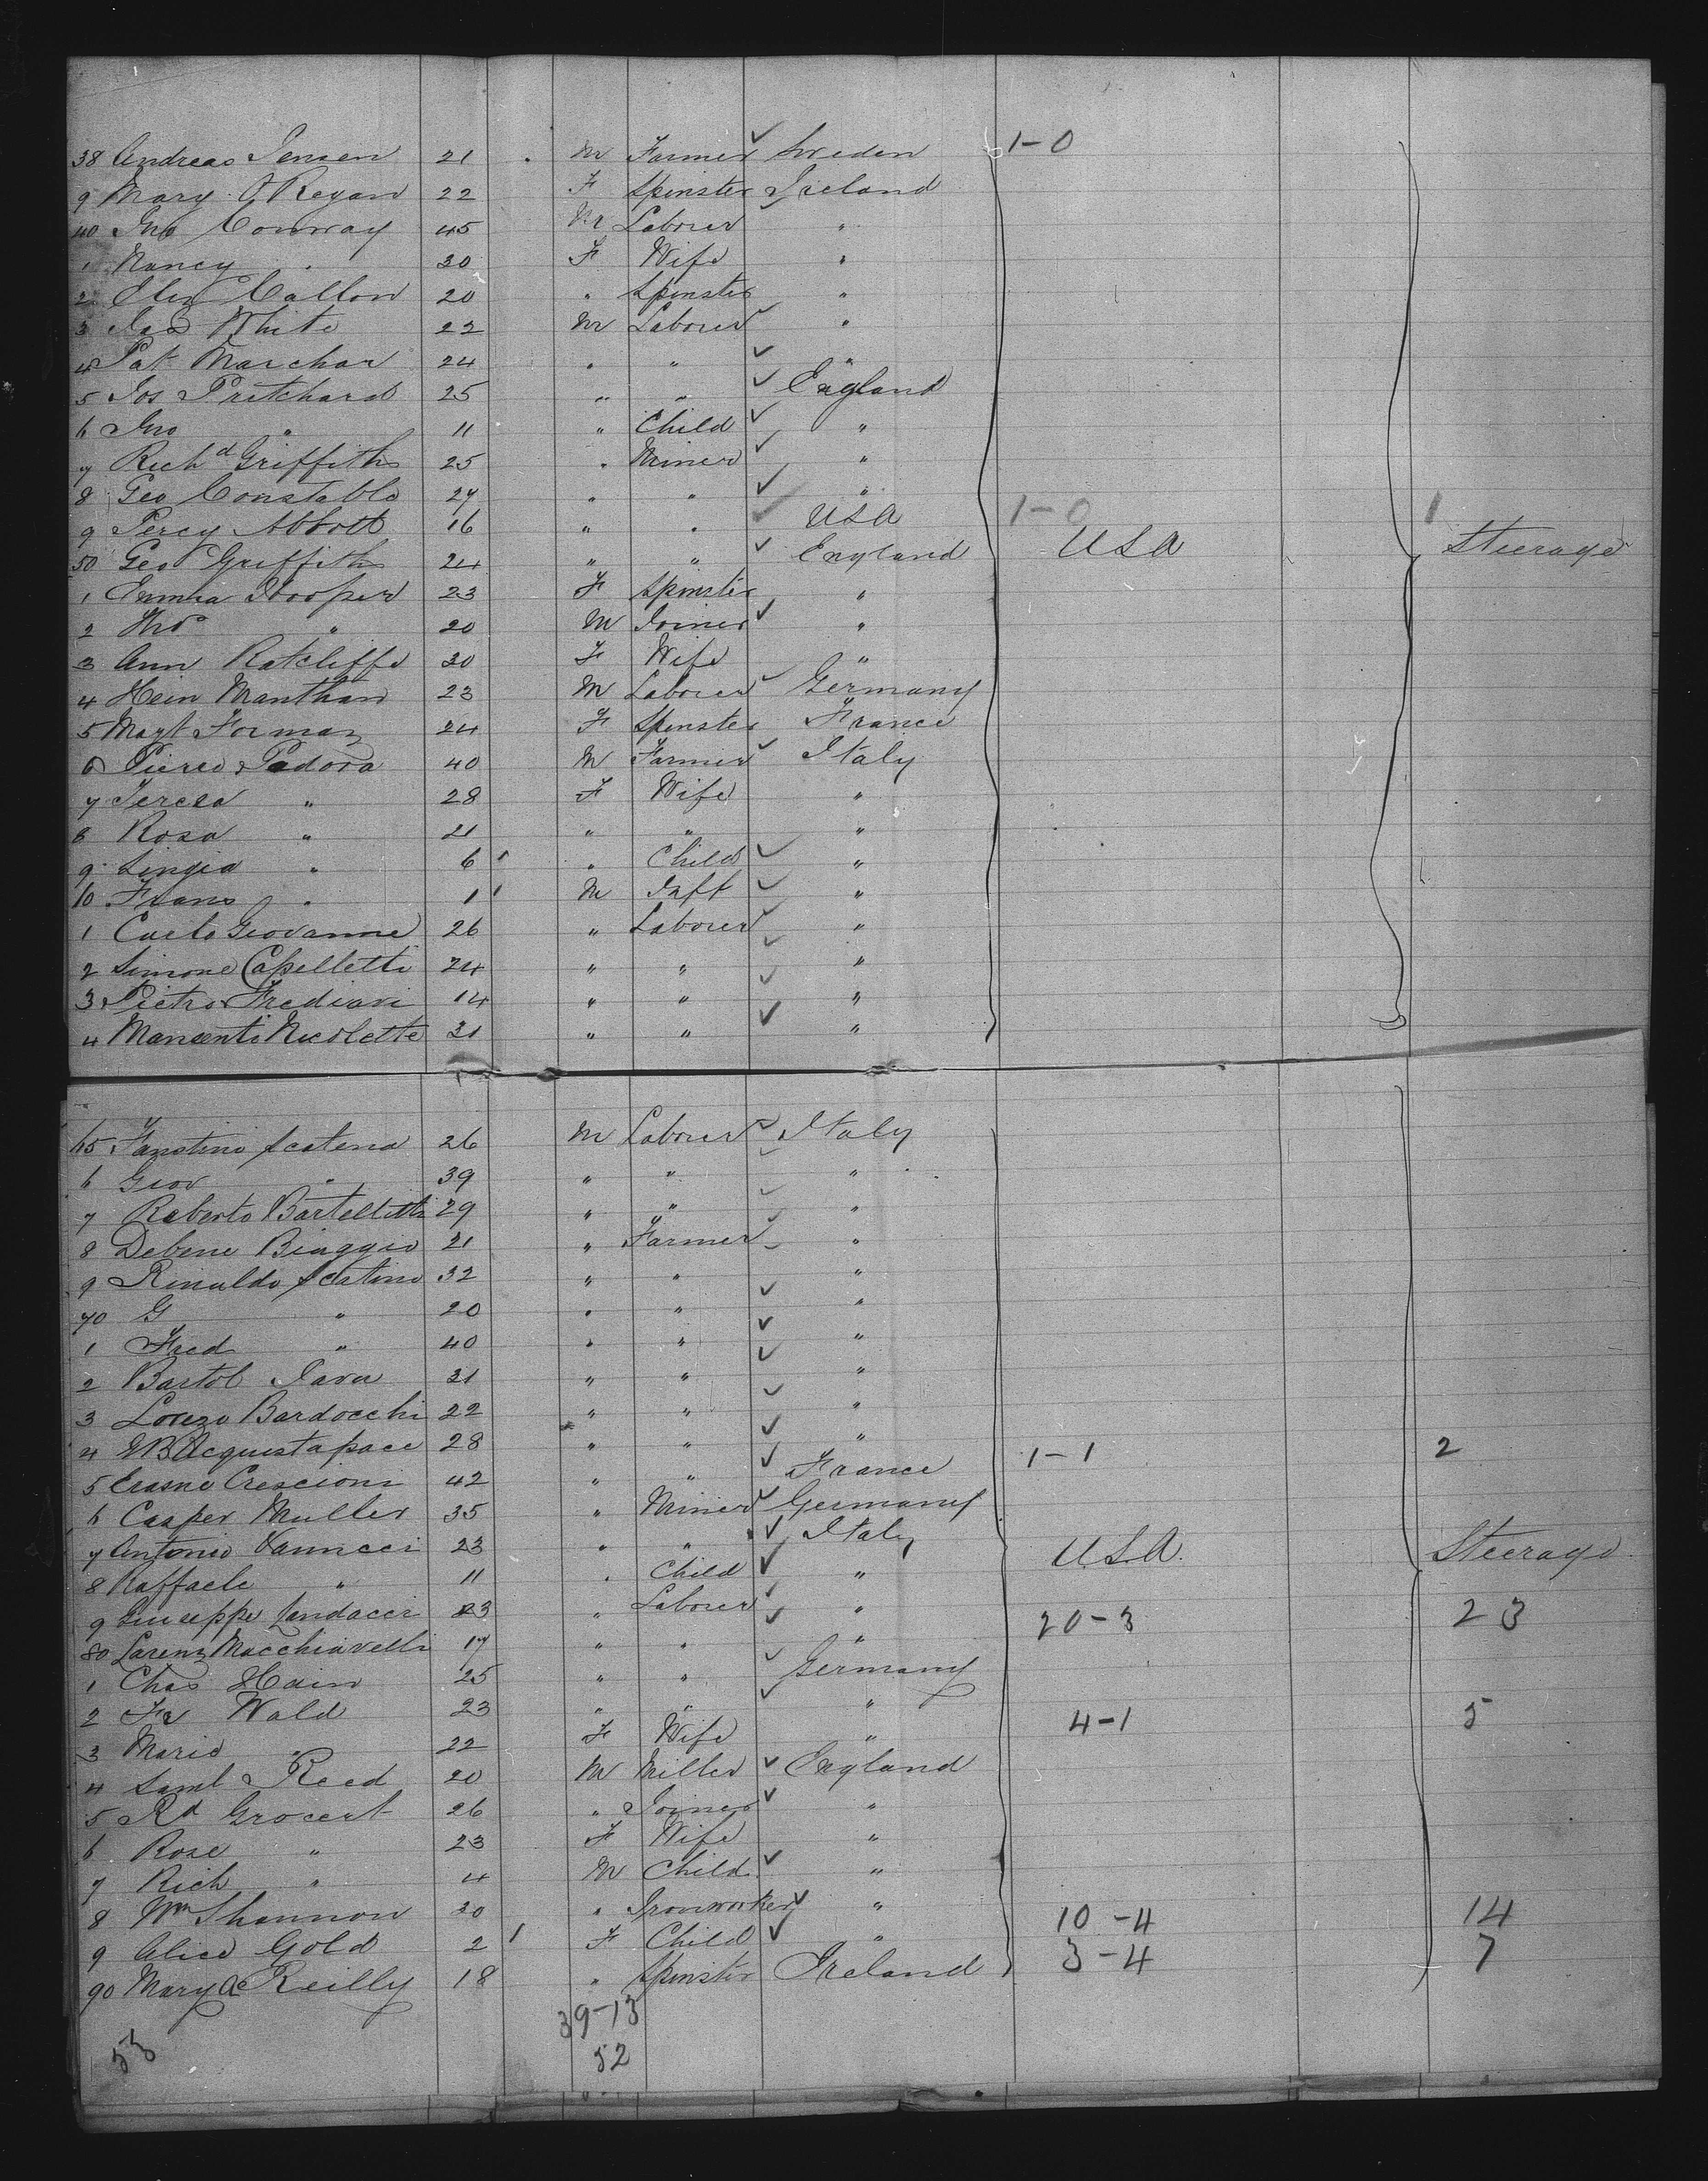 38 Andreas Jensen 21 M Farmer Sweden 1-0
9 Mary O'Regan 22 F Spinster Ireland
40 Jno Conway 45 M Laborer "
1 Nancy " 30 F Wife "
2 Eliz Callon 20 " Spinster "
3 Jas White 22 M Laborer "
4 Pat Marchar 24 " " "
5 Jos Pritchard 25 " " England
6 Jno " 11 " Child "
7 Richd Griffiths 25 " Miner "
8 Geo Constable 27 " " "
9 Percy Abbott 16 " " USA 1-0 1
50 Geo Griffith 24 " " England USA Steerage
1 Emma Hooper 23 F Spinster "
2 Thos " 20 M Joiner "
3 Ann Ratcliffe 30 F Wife "
4 Hein Manthan 23 M Laborer Germany
5 Magt Forman 24 F Spinster France
6 Pierco Padova 40 M Farmer Italy
7 Teresa " 28 F Wife "
8 Rosa " 21 " " "
9 Lingia " 6 " Child "
60 Frans " 1 M Inft "
1 Carlo Giovanne 26 " Laborer "
2 Simone Capelletti 24 " " "
3 Pietro Frediani 14 " " "
4 Mansenti Nicolette 31 " " "
65 Faustino Scatena 26 M Laborer Italy
6 Giov " 39 " " "
7 Roberto Bartelletti 29 " " "
8 Debene Biaggio 21 " Farmer "
9 Rinaldo Scatino 32 " " "
70 G " 20 " " "
1 Fred " 40 " " "
2 Bartol Java 31 " " "
3 Lorezo Bardocchi 22 " " "
4 G B Acquistapace 28 " " " 1-1 2
5 Erasme Crescioni 42 " " France
6 Casper Muller 35 " Miner Germany
7 Antonio Vannucci 23 " " Italy USA. Steerage
8 Raffaele " 11 " Child "
9 Giuseppe Landacci 23 " Laborer " 20-3 23
80 Lorenz Macchiavelli 17 " " "
1 Chas Hain 25 " " Germany
2 Fr Wald 23 " " " 4-1 5
3 Marie " 22 F Wife "
4 Saml Reed 20 M Miller England
5 Rd Grocert 26 " Joiner "
6 Rose " 23 F Wife "
7 Rich " 4 M Child "
8 Wm Shannon 30 " Ironworker " 10-4 14
9 Alice Gold 2 F Child " 3-4 7
90 Mary A Reilly 18 " Spinster Ireland
39-13
53 52